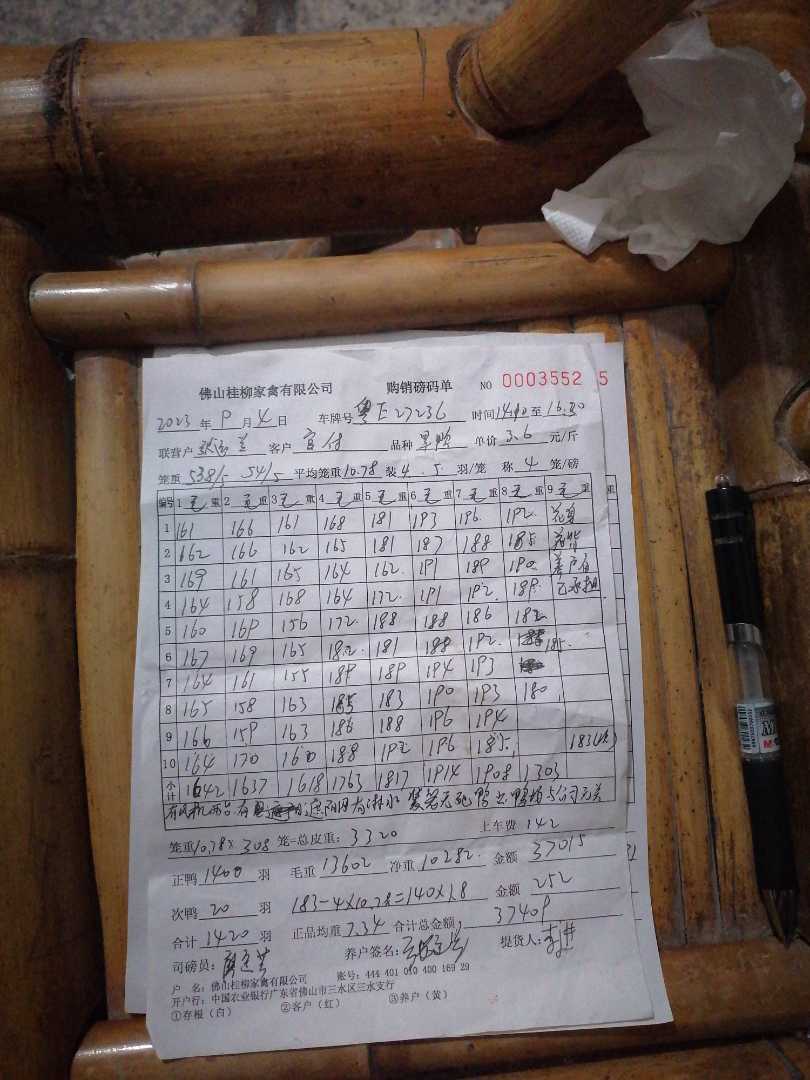 佛山桂柳家禽有限公司 购销磅码单 NO 0003552 5
2023 年 9 月 4 日 车牌号 粤E27236 时间 14:10 至 16:20
联营户 客户 官付 品种 单价 3.6 元/斤
笼重 538/5 54/5 平均笼重 10.78 装 4.5 羽/笼 称 4 笼/磅
编号 1 毛 重 2 毛 重 3 毛 重 4 毛 重 5 毛 重 6 毛 重 7 毛 重 8 毛 重 9 毛 重 重
1 161 166 161 168 181 193 196 192
2 162 166 162 165 181 187 188 185
3 169 161 165 164 162 191 189 190 养户自
4 164 158 168 164 172 191 192 189
5 160 169 156 172 188 188 186 182
6 167 169 165 182 181 188 192 185
7 164 161 155 189 189 194 193
8 165 158 163 185 183 190 193 180
9 166 159 163 186 188 196 194
10 164 170 160 188 192 196 185 183(4)
小计 1642 1637 1618 1763 1817 1914 1908 1303
笼重 10.78 × 308 笼=总皮重: 3320 上车费 142
正鸭 1400 羽 毛重 13602 净重 10282 金额 37015
次鸭 20 羽 183-4×10.78=140×1.8 金额 252
合计 1420 羽 正品均重 7.34 合计总金额 37409
司磅员: 养户签名: 提货人:
户 名: 佛山桂柳家禽有限公司 账号: 444 401 010 400 169 29
开户行: 中国农业银行广东省佛山市三水区三水支行
①存根(白) ②客户(红) ③养户(黄)